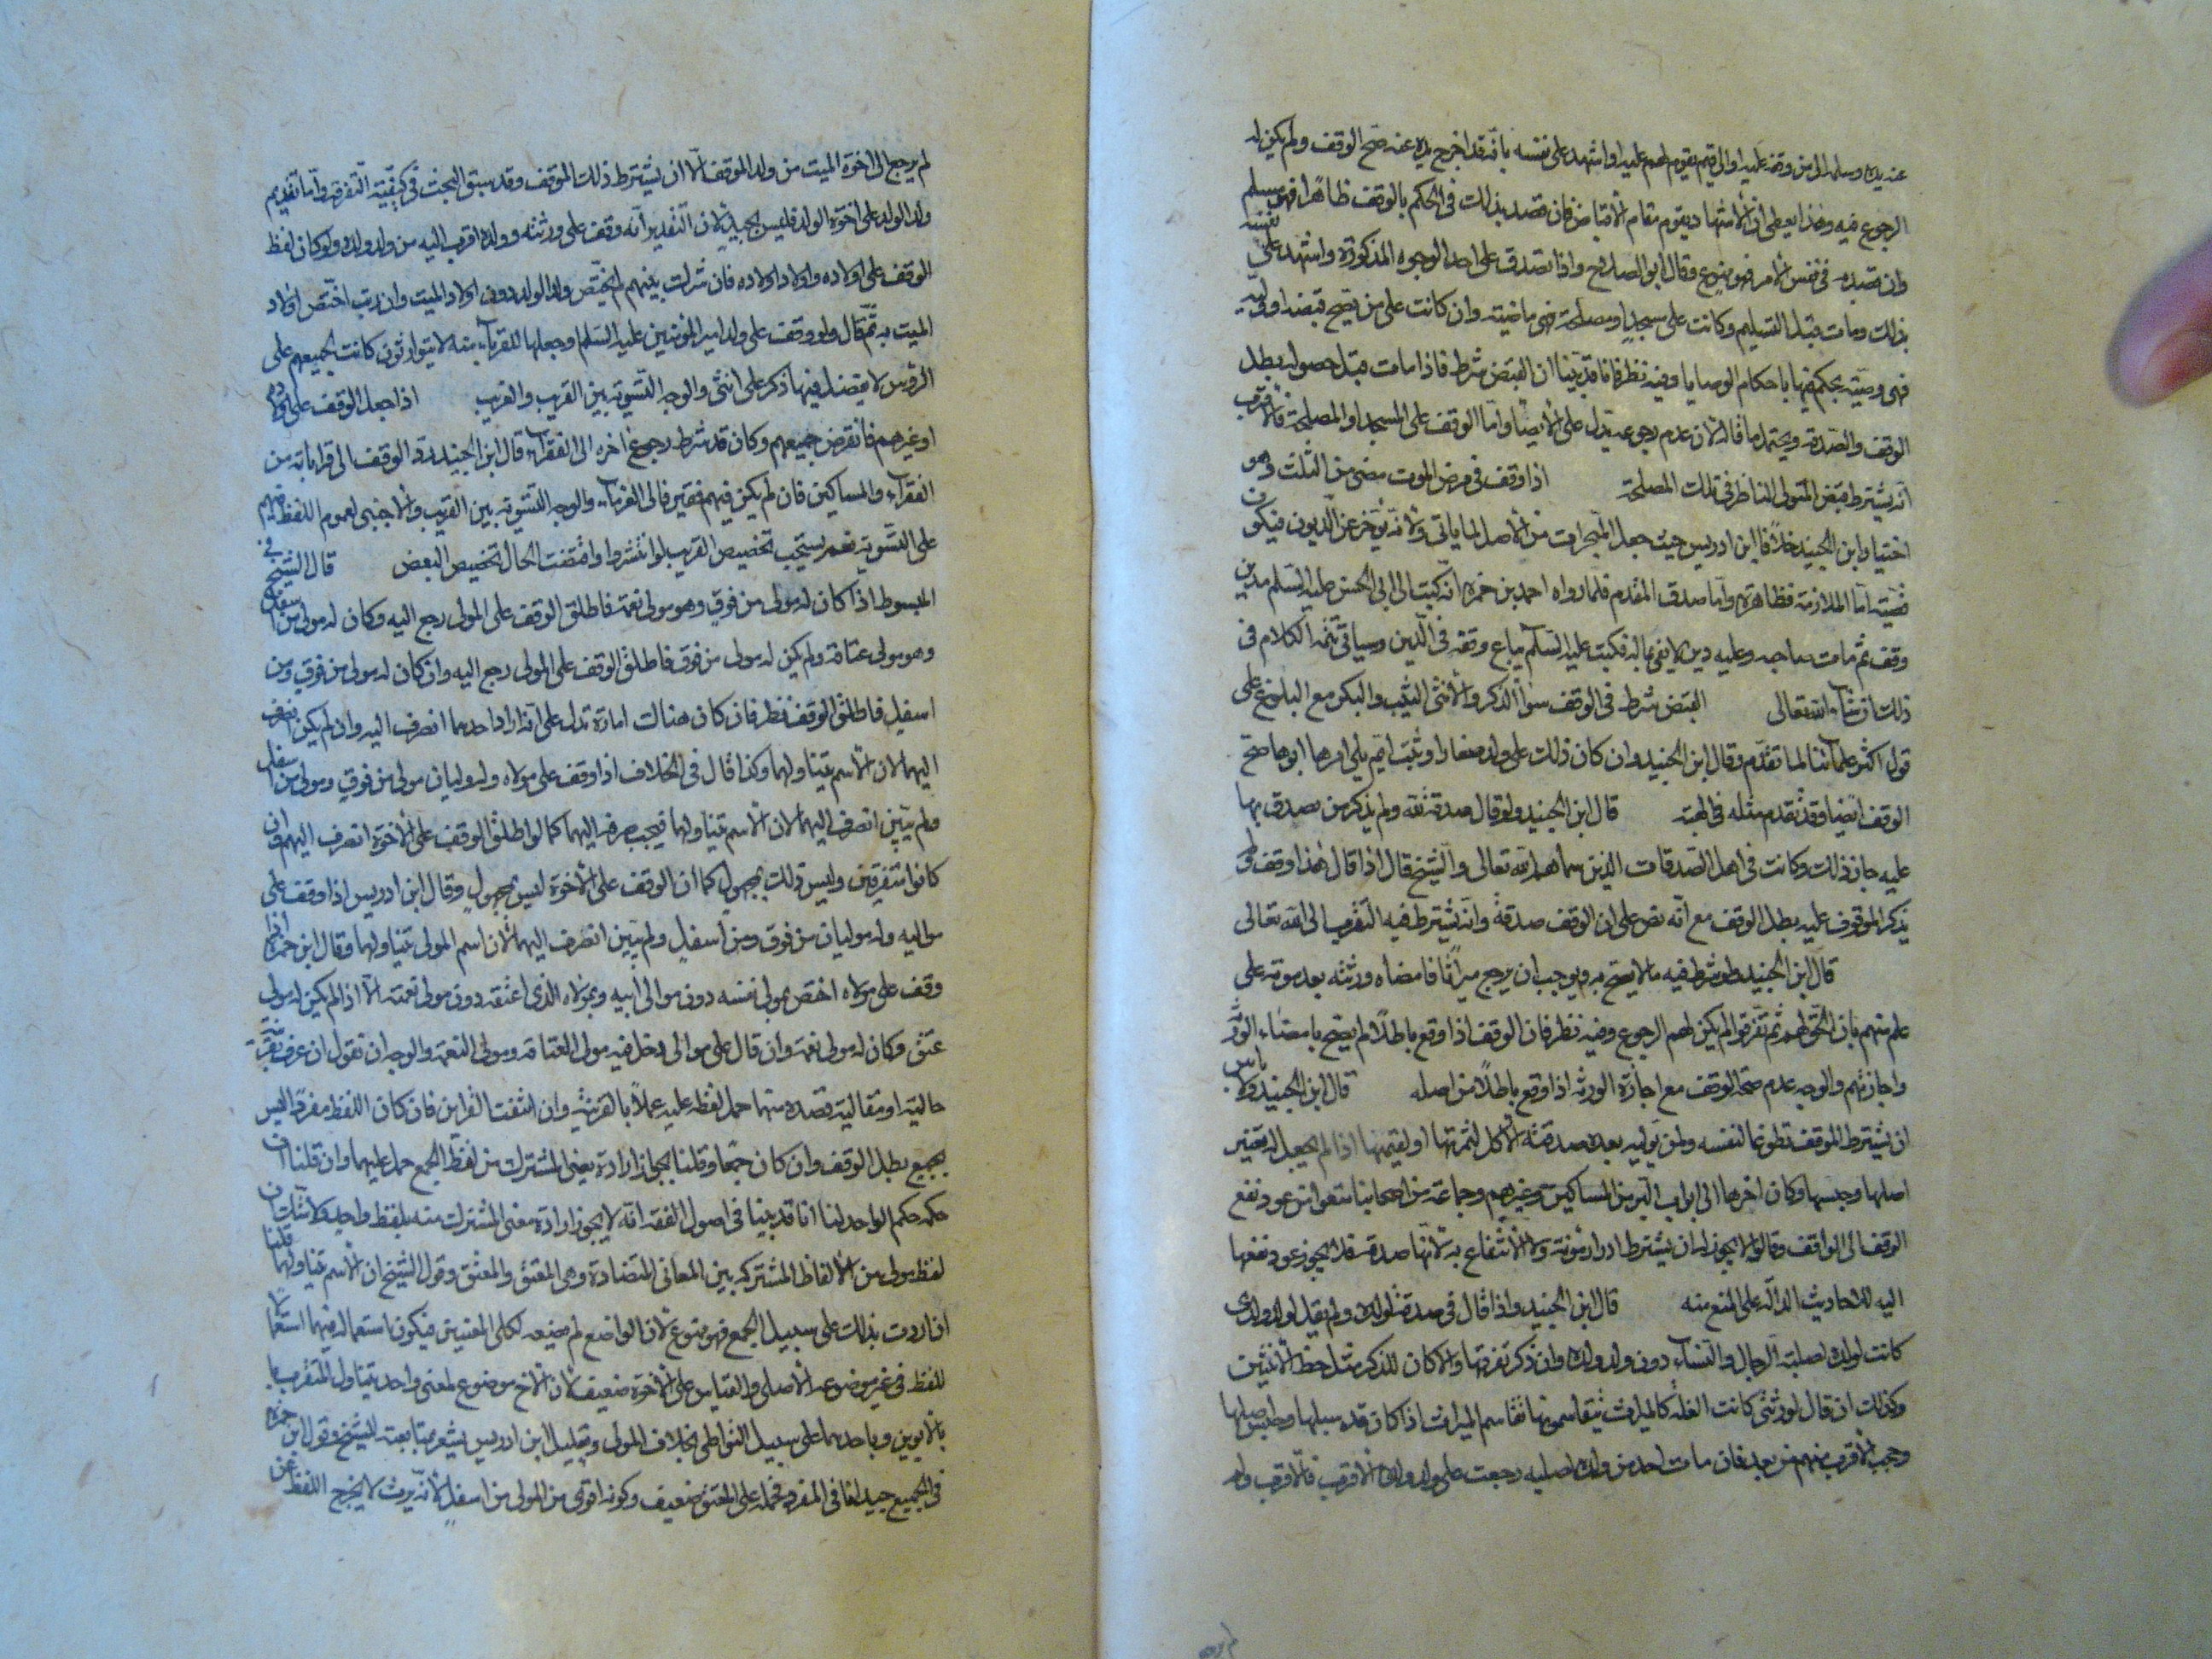 عنه يده وسلمه الى من وقفه عليه او الى قيم يقوم لهم عليه او اشهد على نفسه بانه قد اخرج يده عنه صح الوقف ولم يكن له
الرجوع فيه وهذا يعطى ان الاشهاد يقوم مقام الاقباض فان قصد بذلك فى الحكم بالوقف ظاهرا فهو مسلم
وان قصده فى نفس الامر فهو ممنوع وقال ابو الصلاح واذا تصدق على احد الوجوه المذكورة واشهد على نفسه
بذلك ومات قبل التسليم وكانت على مسجد او مصلحة فهى ماضية وان كانت على من يصح قبضه او وليه
فهى وصية يحكم فيها باحكام الوصايا وفيه نظر فانا قد بينا ان القبض شرط فاذا مات قبل حصوله بطل
الوقف والصدقة ويحتمل ما قاله لان عدم رجوعه يدل على الايصاء واما الوقف على المسجد او المصلحة فالاقرب
انه يشترط قبض المتولى الناظر فى تلك المصلحة اذا وقف فى مرض الموت مضى من الثلث وهو
اختيار ابن الجنيد خلافا لابن ادريس حيث جعل المنجزات من الاصل لما ياتى ولانه يؤخر عن الديون فيكون
وصية اما الملازمة فظاهرة واما صدق المقدم فلما رواه احمد بن حمزة انه كتب الى ابى الحسن عليه السلم مدين
وقف ثم مات صاحبه وعليه دين لا يفى بماله فكتب عليه السلم يباع وقفه فى الدين وسياتى تتمة الكلام فى
ذلك ان شاء الله تعالى القبض شرط فى الوقف سواء الذكر والانثى الثيب والبكر مع البلوغ على
قول اكثر علمائنا لما تقدم وقال ابن الجنيد وان كان ذلك على ولد صغار او بنت ايم يلى امرها ابوها صح
الوقف ايضا وقد تقدم مثله فى الهبة قال ابن الجنيد ولو قال صدقة لله ولم يذكر من تصدق بها
عليه جاز ذلك وكانت فى اهل الصدقات الذين سماهم الله تعالى والشيخ قال اذا قال هذا وقف ولم
يذكر الموقوف عليه بطل الوقف مع انه نص على ان الوقف صدقة وانه يشترط فيه التقرب الى الله تعالى
قال ابن الجنيد ولو شرط فيه ما لا يصح به ويوجب ان يرجع ميراثا فامضاه ورثته بعد موته على
علم منهم بان الحق لهم ثم تفرقوا لم يكن لهم الرجوع وفيه نظر فان الوقف اذا وقع باطلا لم يصح بامضاء الورثة
واجازتهم والوجه عدم صحة الوقف مع اجازة الورثة اذا وقع باطلا من اصله قال ابن الجنيد ولا باس
ان يشترط الموقف تطوعا لنفسه ولمن يوليه بعده صدقته الاكل لثمرتها او لقيمتها اذا لم يجعل له تغيير
اصلها وحبسها وكان اخرها الى ابواب البر من المساكين وغيرهم وجماعة من اصحابنا منعوا من عود نفع
الوقف الى الواقف وقالوا لا يجوز له ان يشترط ادرار مؤنته ولا الانتفاع به لانها صدقة فلا يجوز عود نفعها
اليه للاحاديث الدالة على المنع منه قال ابن الجنيد واذا قال فى صدقته لولدى ولم يقل لولد ولدى
كانت لولده لصلبه الرجال والنساء دون ولد ولده وان ذكر تفرقتها والا كان للذكر مثل حظ الانثيين
وكذلك ان قال لورثتى كانت الغلة كالميراث يتقاسمونها تقاسم الميراث اذا كان قد سبلها وحبس اصلها
وحجب الاقرب منهم من بعد فان مات احد من ولده لصلبه رجعت على ولد ولده الاقرب فالاقرب ولو
لم يرجع الى اخوة الميت من ولد الموقف الا ان يشترط ذلك الموقف وقد سبق البحث فى كيفية التفرقة واما تقديم
ولد الولد على اخوة الولد فليس بجيد لان التقدير انه وقف على ورثته وولده اقرب اليه من ولد ولده ولو كان لفظ
الوقف على اولاده واولاد اولاده فان شرك بينهم لم يختص ولد الولد دون اولاد الميت وان رتب اختص اولاد
الميت به ثم قال ولو وقف على ولد امير المؤمنين عليه السلم وجعلها للقرباء منه لا يتوارثون كانت لجميعهم على
الرؤس لا يفضل فيها ذكر على انثى والوجه التسوية بين القريب والغريب اذا جعل الوقف على اولاده
او غيرهم فانقرض جميعهم وكان قد شرط رجوع اخره الى الفقراء قال ابن الجنيد رد الوقف الى قراباته من
الفقراء والمساكين فان لم يكن فيهم فقير فالى الغرباء والوجه التسوية بين القريب والاجنبى لعموم اللفظ فيهم
على التسوية نعم يستحب تخصيص القريب لو انتشروا واقتضت الحال تخصيص البعض قال الشيخ فى
المبسوط اذا كان له مولى من فوق وهو مولى نعمة فاطلق الوقف على المولى رجع اليه وكان له مولى من اسفل
وهو مولى عتاقة ولم يكن له مولى من فوق فاطلق الوقف على المولى رجع اليه وان كان له مولى من فوق ومن
اسفل فاطلق الوقف نظر فان كان هناك امارة تدل على انه اراد احدهما انصرف اليه وان لم يكن انصرف
اليهما لان الاسم يتناولهما وكذا قال فى الخلاف اذا وقف على مولاه وله موليان مولى من فوق ومولى من اسفل
ولم يبين انصرف اليهما لان الاسم يتناولهما فيجب صرفه اليهما كما لو اطلق الوقف على الاخوة انصرف اليهم وان
كانوا متفرقين وليس ذلك بمجهول كما ان الوقف على الاخوة ليس بمجهول وقال ابن ادريس اذا وقف على
مواليه وله موليان من فوق ومن اسفل ولم يبين انصرف اليهما لان اسم المولى يتناولهما وقال ابن حمزة اذا
وقف على مولاه اختص بمولى نفسه دون موالى ابيه وبمولاه الذى اعتقه دون مولى نعمته الا اذا لم يكن له مولى
عتق وكان له مولى نعمة وان قال على موالى دخل فيه مولى العتاقة ومولى النعمة والوجه ان نقول ان عرف بقرينة
حالية او مقالية قصده منهما حمل لفظه عليه عملا بالقرينة وان انتفت القراين فان كان اللفظ مفردا ليس
بجمع بطل الوقف وان كان جمعا وقلنا بجواز ارادة معنى المشترك من لفظ الجمع حمل عليهما وان قلنا ان
حكمه حكم الواحد لنا انا قد بينا فى اصول الفقه انه لا يجوز ارادة معنى المشترك منه بلفظ واحد ولا شك ان
لفظ مولى من الالفاظ المشتركة بين المعانى المتضادة وهى المعتق والمعتق وقول الشيخ ان الاسم يتناولهما قلنا
ان اردت بذلك على سبيل الجمع فهو ممنوع لان الواضع لم يضعه لكلى المعنيين فيكون استعماله فيهما استعمالا
للفظ فى غير موضوعه الاصلى والقياس على الاخوة ضعيف لان الاخ موضوع لمعنى واحد يتناول المتقرب
بالابوين وباحدهما على سبيل التواطى بخلاف المولى وتعليل ابن ادريس يشعر بمتابعته للشيخ وقول ابن حمزة
فى الجمع جيد اما فى المفرد فحمله على المعتق ضعيف وكونه اقوى من المولى من اسفل لانه يرث لا يخرج اللفظ عن